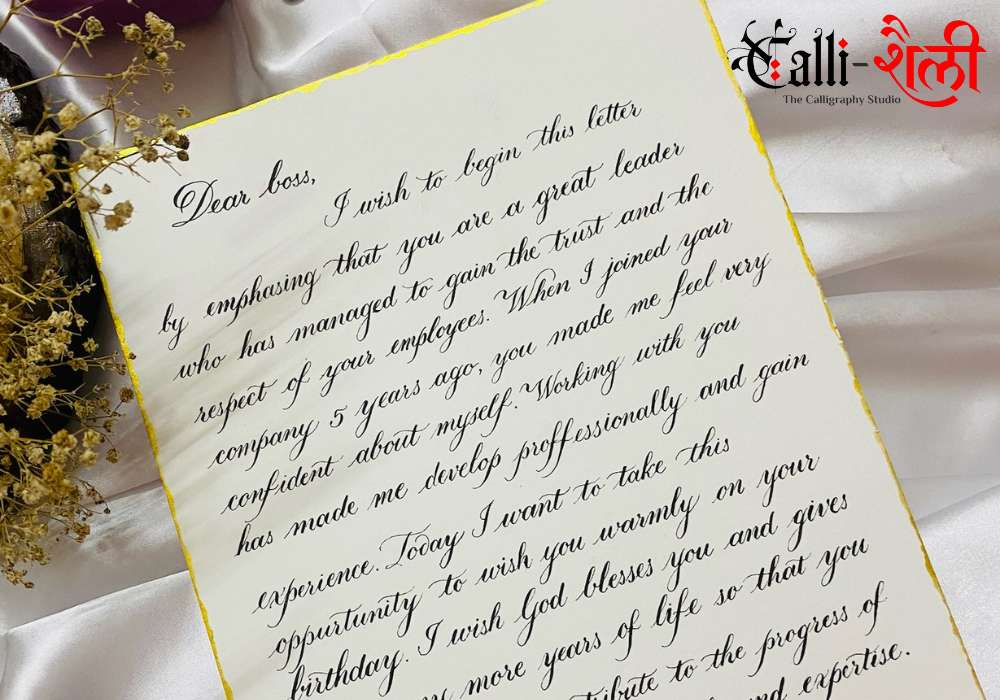 Calli-शैली
The Calligraphy Studio
Dear boss,
I wish to begin this letter
by emphasing that you are a great leader
who has managed to gain the trust and the
respect of your employees. When I joined your
company 5 years ago, you made me feel very
confident about myself. Working with you
has made me develop proffessionally and gain
experience. Today I want to take this
oppurtunity to wish you warmly on your
birthday. I wish God blesses you and gives
more years of life so that you
to the progress of
expertise.